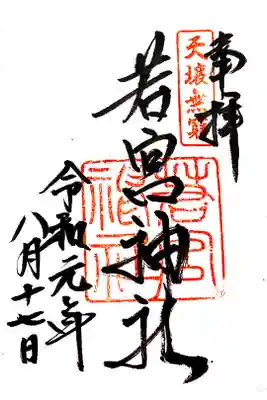 奉拝
天壌無窮
若宮神社
令和元年
八月十七日